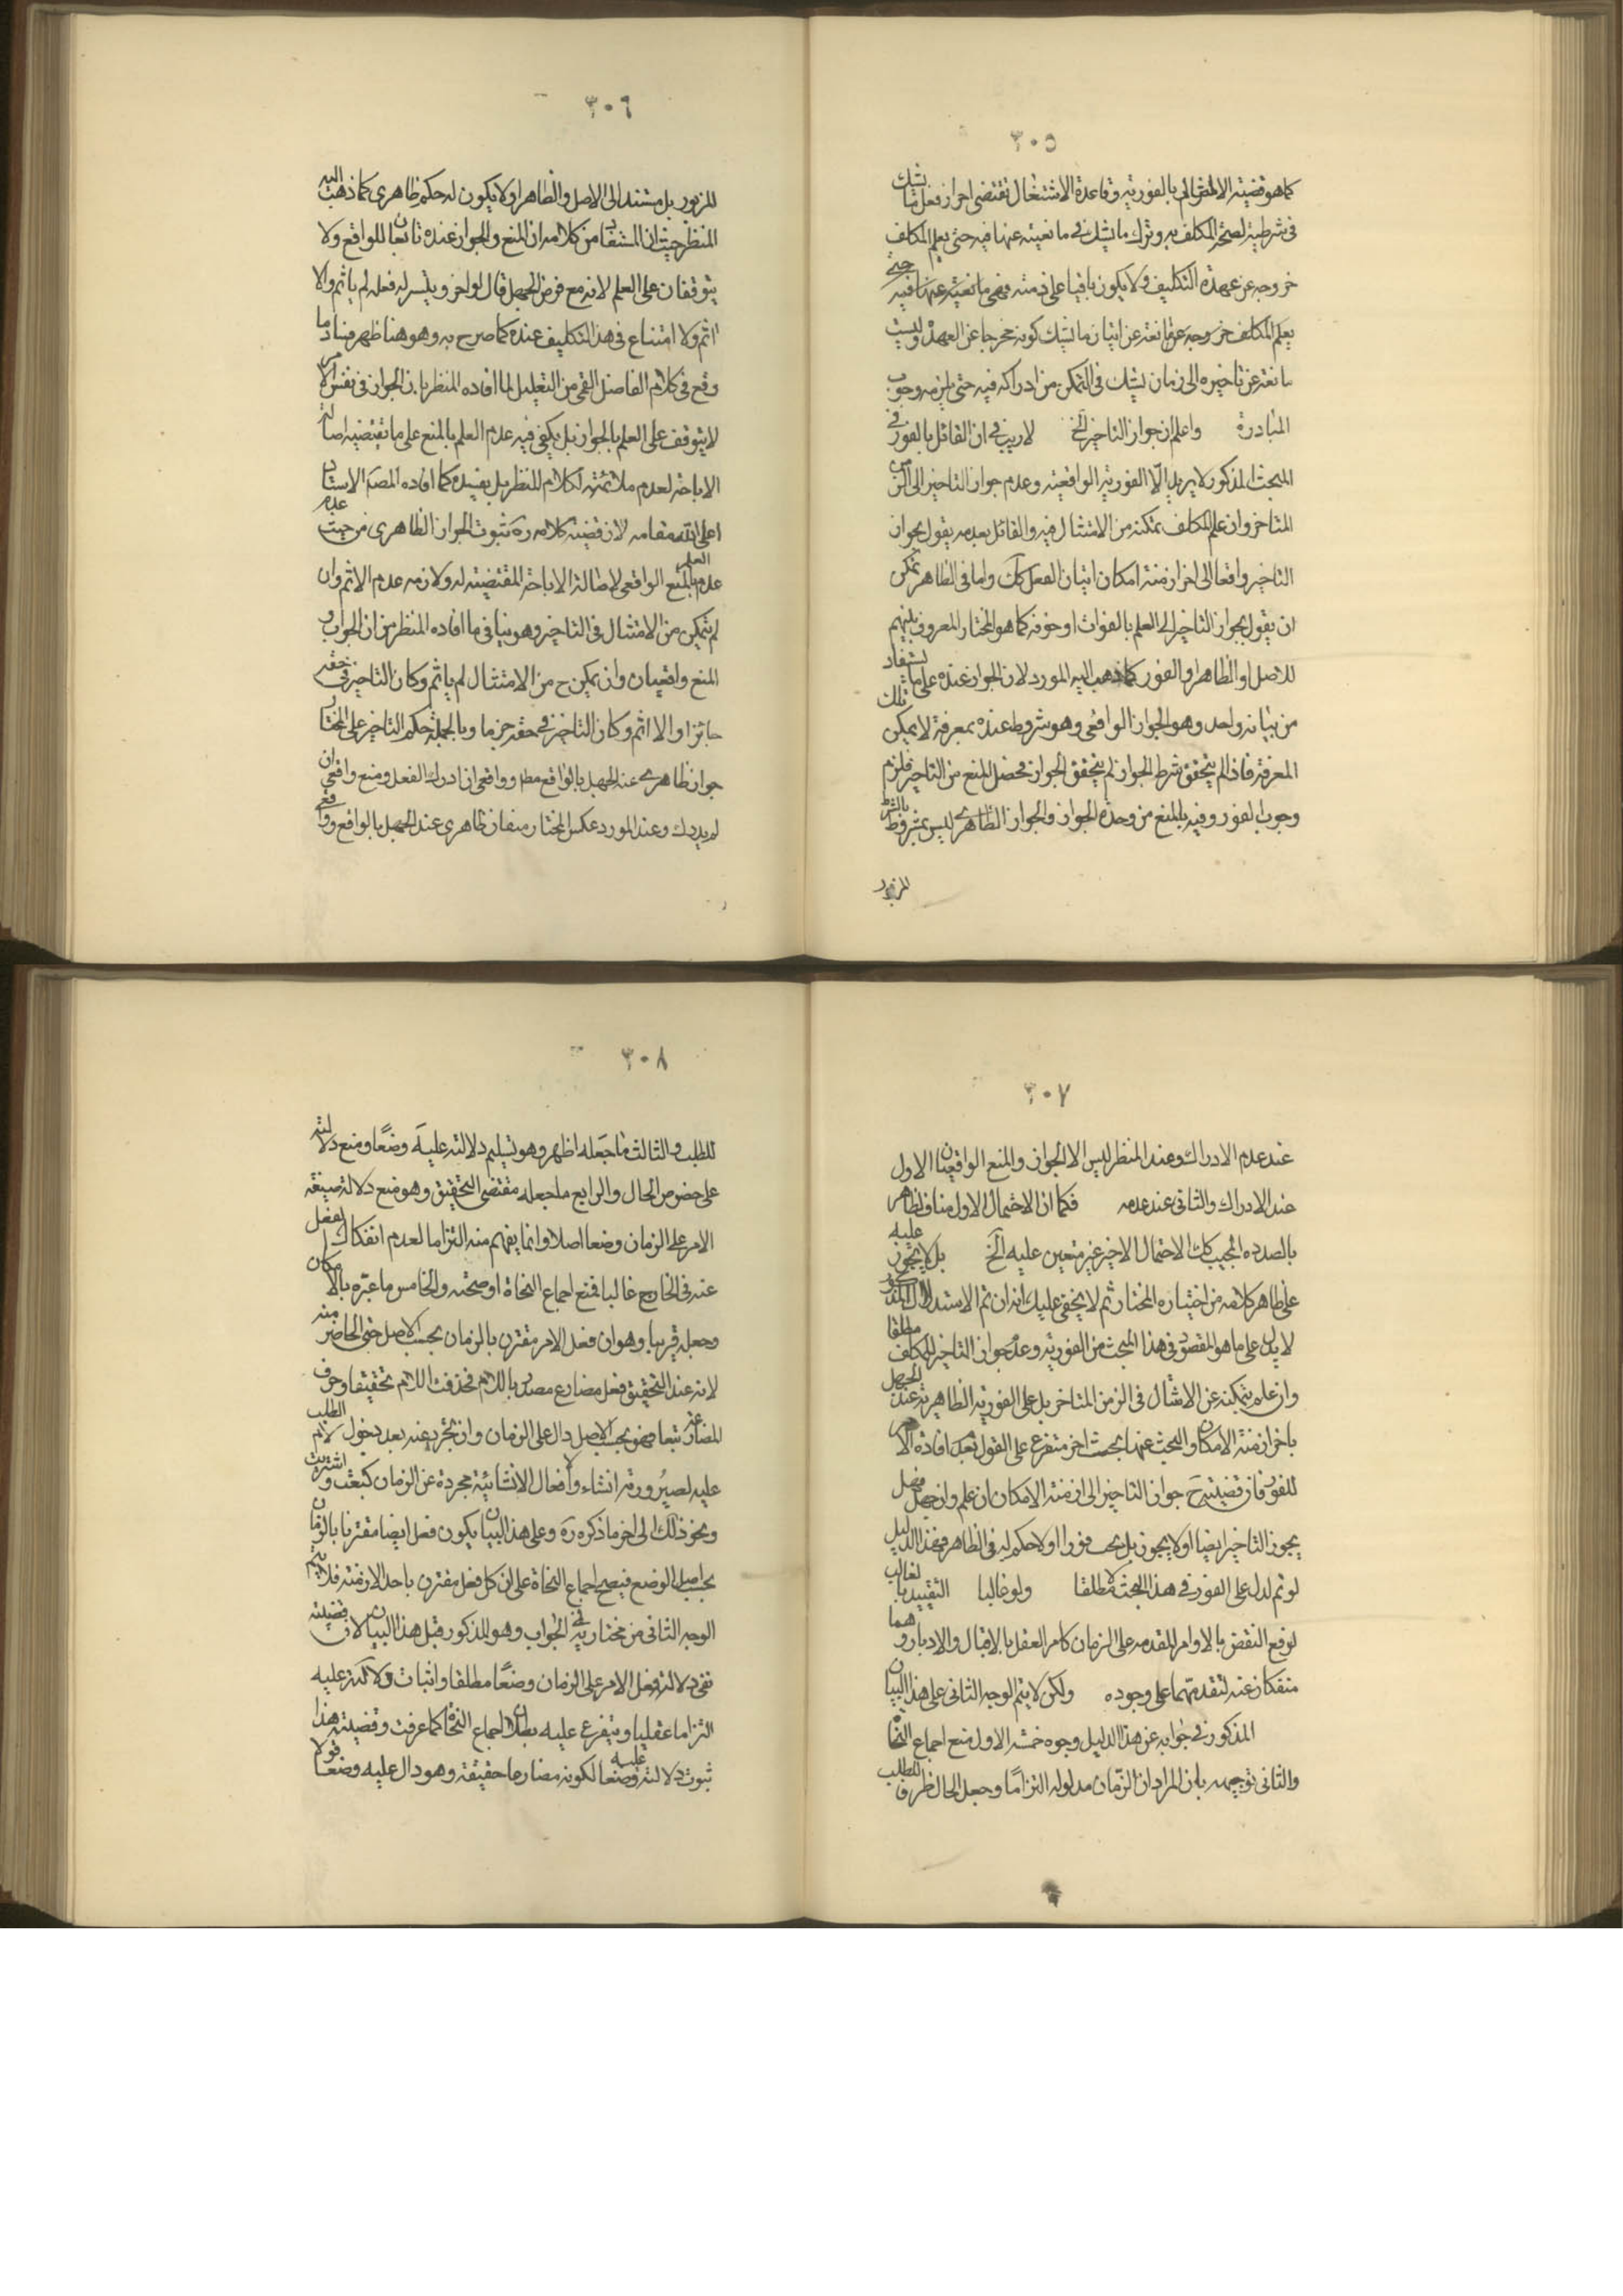 ٣٠٥
كما هو قضية الالتقالى بالفورية وقاعدة الاشتغال تقتضى احراز فعل ما يشك
فى شرطية لصحة المكلف به وترك ما يشك فى مانعيته عنها فيه حتى يعلم المكلف
خروجه عن عهدة التكليف ولا يكون باقيا على ذمته فهى مانعيته عنها فيه حتى
يعلم المكلف خروجه عنها مانعة عن اتيان ما يشك كونه مخرجا عن العهدة وليست
مانعة عن تاخيره الى زمان يشك فى التمكن من ادراكه فيه حتى يلزمه وجوب
المبادرة واعلم ان جواز التاخير الخ لا ريب فى ان القائل بالفور فى
المبحث المذكور لا يريد الا الفورية الواقعية وعدم جواز التاخير الى الزمن
المتاخر وان علم المكلف تمكنه من الامتثال فيه والقائل بعدمه يقول بجواز
التاخير واقعا الى اخر ازمنة امكان اتيان الفعل كك واما فى الظاهر يمكن
ان يقول بجواز التاخير الى العلم بالفوات او خوفه كما هو المختار المعروف بينهم
للاصل او الظاهر او الفور كما ذهب اليه المورد لان الجواز عنده على ما يستفاد
من بيانه واحد وهو الجواز الواقعى وهو مشروط عنده بمعرفة لا يمكن تلك
المعرفة فاذا لم يتحقق شرط الجواز لم يتحقق الجواز فحصل المنع من التاخير فلزم
وجوب الفور وفيه بالمنع من وحدة الجواز والجواز الظاهرى ليس بمشروط بالشرط
المزبور
٣٠٦
المزبور بل مستند الى الاصل والظاهر او لا يكون له حكم ظاهرى كما ذهب اليه
المنظر حيث ان المستفاد من كلامه ان المنع والجواز عنده تابعان للواقع ولا
يتوقفان على العلم لانه مع فرض الجهل قال لو اخر ويتسر له فعله لم ياثم والا
اثم ولا امتناع فى هذا التكليف عنده كما صرح به وهو هنا ظهر فساد ما
وقع فى كلام الفاضل القمى من التعليل لما افاده المنظر بان الجواز فى نفس الامر
لا يتوقف على العلم بالجواز بل يكفى فيه عدم العلم بالمنع على ما تقتضيه اصالة
الاباحة لعدم ملائمته لكلام المنظر بل يفسده كما افاده المصم الاستاد
اعلى الله مقامه لان قضية كلامه ره ثبوت الجواز الظاهرى من حيث عدم
عدم العلم بالمنع الواقعى لاصالة الاباحة المقتضية له ولازمه عدم الاثم وان
لم يتمكن من الامتثال فى التاخير وهو ينافى ما افاده المنظر من ان الجواز و
المنع واقعيان وان يمكن ح من الامتثال لم ياثم وكان التاخير فى حقه
جائزا والا اثم وكان التاخير فى حقه حرما وبالجملة حكم التاخير على المختار
جواز ظاهرى عند الجهل بالواقع مطر وواقعى ان ادرك الفعل ومنع واقعى ان
لم يدرك وعند المورد عكس المختار منفاز ظاهرى عند الجهل بالواقع وواقعى
٣٠٧
عند عدم الادراك وعند المنظر ليس الا الجواز والمنع الواقعيان الاول
عند الادراك والثانى عند عدمه فكما ان الاحتمال الاول مناف لظاهر
بالصدده المجيب كك الاحتمال الاخير غير متعين عليه الخ بل لا يتجوز عليه
على ظاهر كلامه من اختياره المختار ثم لا يخفى عليك انه ان تم الاستدلال المذكور
لا يدل على ما هو المقصود فى هذا المبحث من الفورية وعدم جواز التاخير للمكلف مطلقا
وان علم بتمكنه عن الامتثال فى الزمن المتاخر بل على الفورية الظاهرية عند الجهل
باخر ازمنة الامكان والبحث عنها بحث اخر متفرع على القول بعدم افادة الامر
للفور فان قضيته ح جواز التاخير الى ازمنة الامكان ان علم وان جهل فهل
يجوز التاخير ايضا او لا يجوز بل يجب فورا او لا حكم له فى الظاهر فهذا الدليل
لو تم لدل على الفور فى هذا المبحث لا مطلقا ولو غالبا التقييد بالغالب
لوقع النقض بالاوامر المقدمه على الزمان كامر العقل بالاقبال والادبار وهما
منفكان عنه لتقدمهما على وجوده ولكن لا يتم الوجه الثانى على هذا البيان
المذكور فى جوابه عن هذا الدليل وجوه خمسة الاول منع اجماع النحاة
والثانى توجيهه بان المراد ان الزمان مدلوله التزاما وجعل الحال ظرفا للطلب
٣٠٨
للطلب والثالث ما جعله اظهر وهو تسليم دلالته عليه وضعا ومنع دلالته
على خصوص الحال والرابع ما جعله مقتضى التحقيق وهو منع دلالة صيغة
الامر على الزمان وضعا اصلا وانما يفهم منه التزاما لعدم انفكاك الفعل
عنه فى الخارج غالبا فمنع اجماع النحاة او صحته والخامس ما عبره بالامكان
وجعله قريبا وهو ان فعل الامر مقترن بالزمان بحسب الاصل حتى الحاضر منه
لانه عند التحقيق فعل مضارع مصدر باللام فحذفت اللام تخفيفا وحرف
المضارعة تبعا فهو بحسب الاصل دال على الزمان وان تجرد عنه بعد دخول لام الطلب
عليه لصيرورته انشاء والافعال الانشائية مجردة عن الزمان كبعت واشتريت
ونحو ذلك الى اخر ما ذكره ره وعلى هذا البيان يكون فعل ايضا مقترنا بالزمان
بحسب اصل الوضع فيصح اجماع النحاة على ان كل فعل مقترن باحد الازمنة فلا يتم
الوجه الثانى من مختاريه فى الجواب وهو المذكور قبل هذا البيان لان قضيته
نفى دلالة فعل الامر على الزمان وضعا مطلقا واثبات دلالته عليه
التزاما عقليا ويتفرع عليه بطلان اجماع النحاة كما عرفت وقضية هذا
ثبوت دلالته عليه وضعا لكونه مضارعا حقيقة وهو دال عليه وضعا قولا